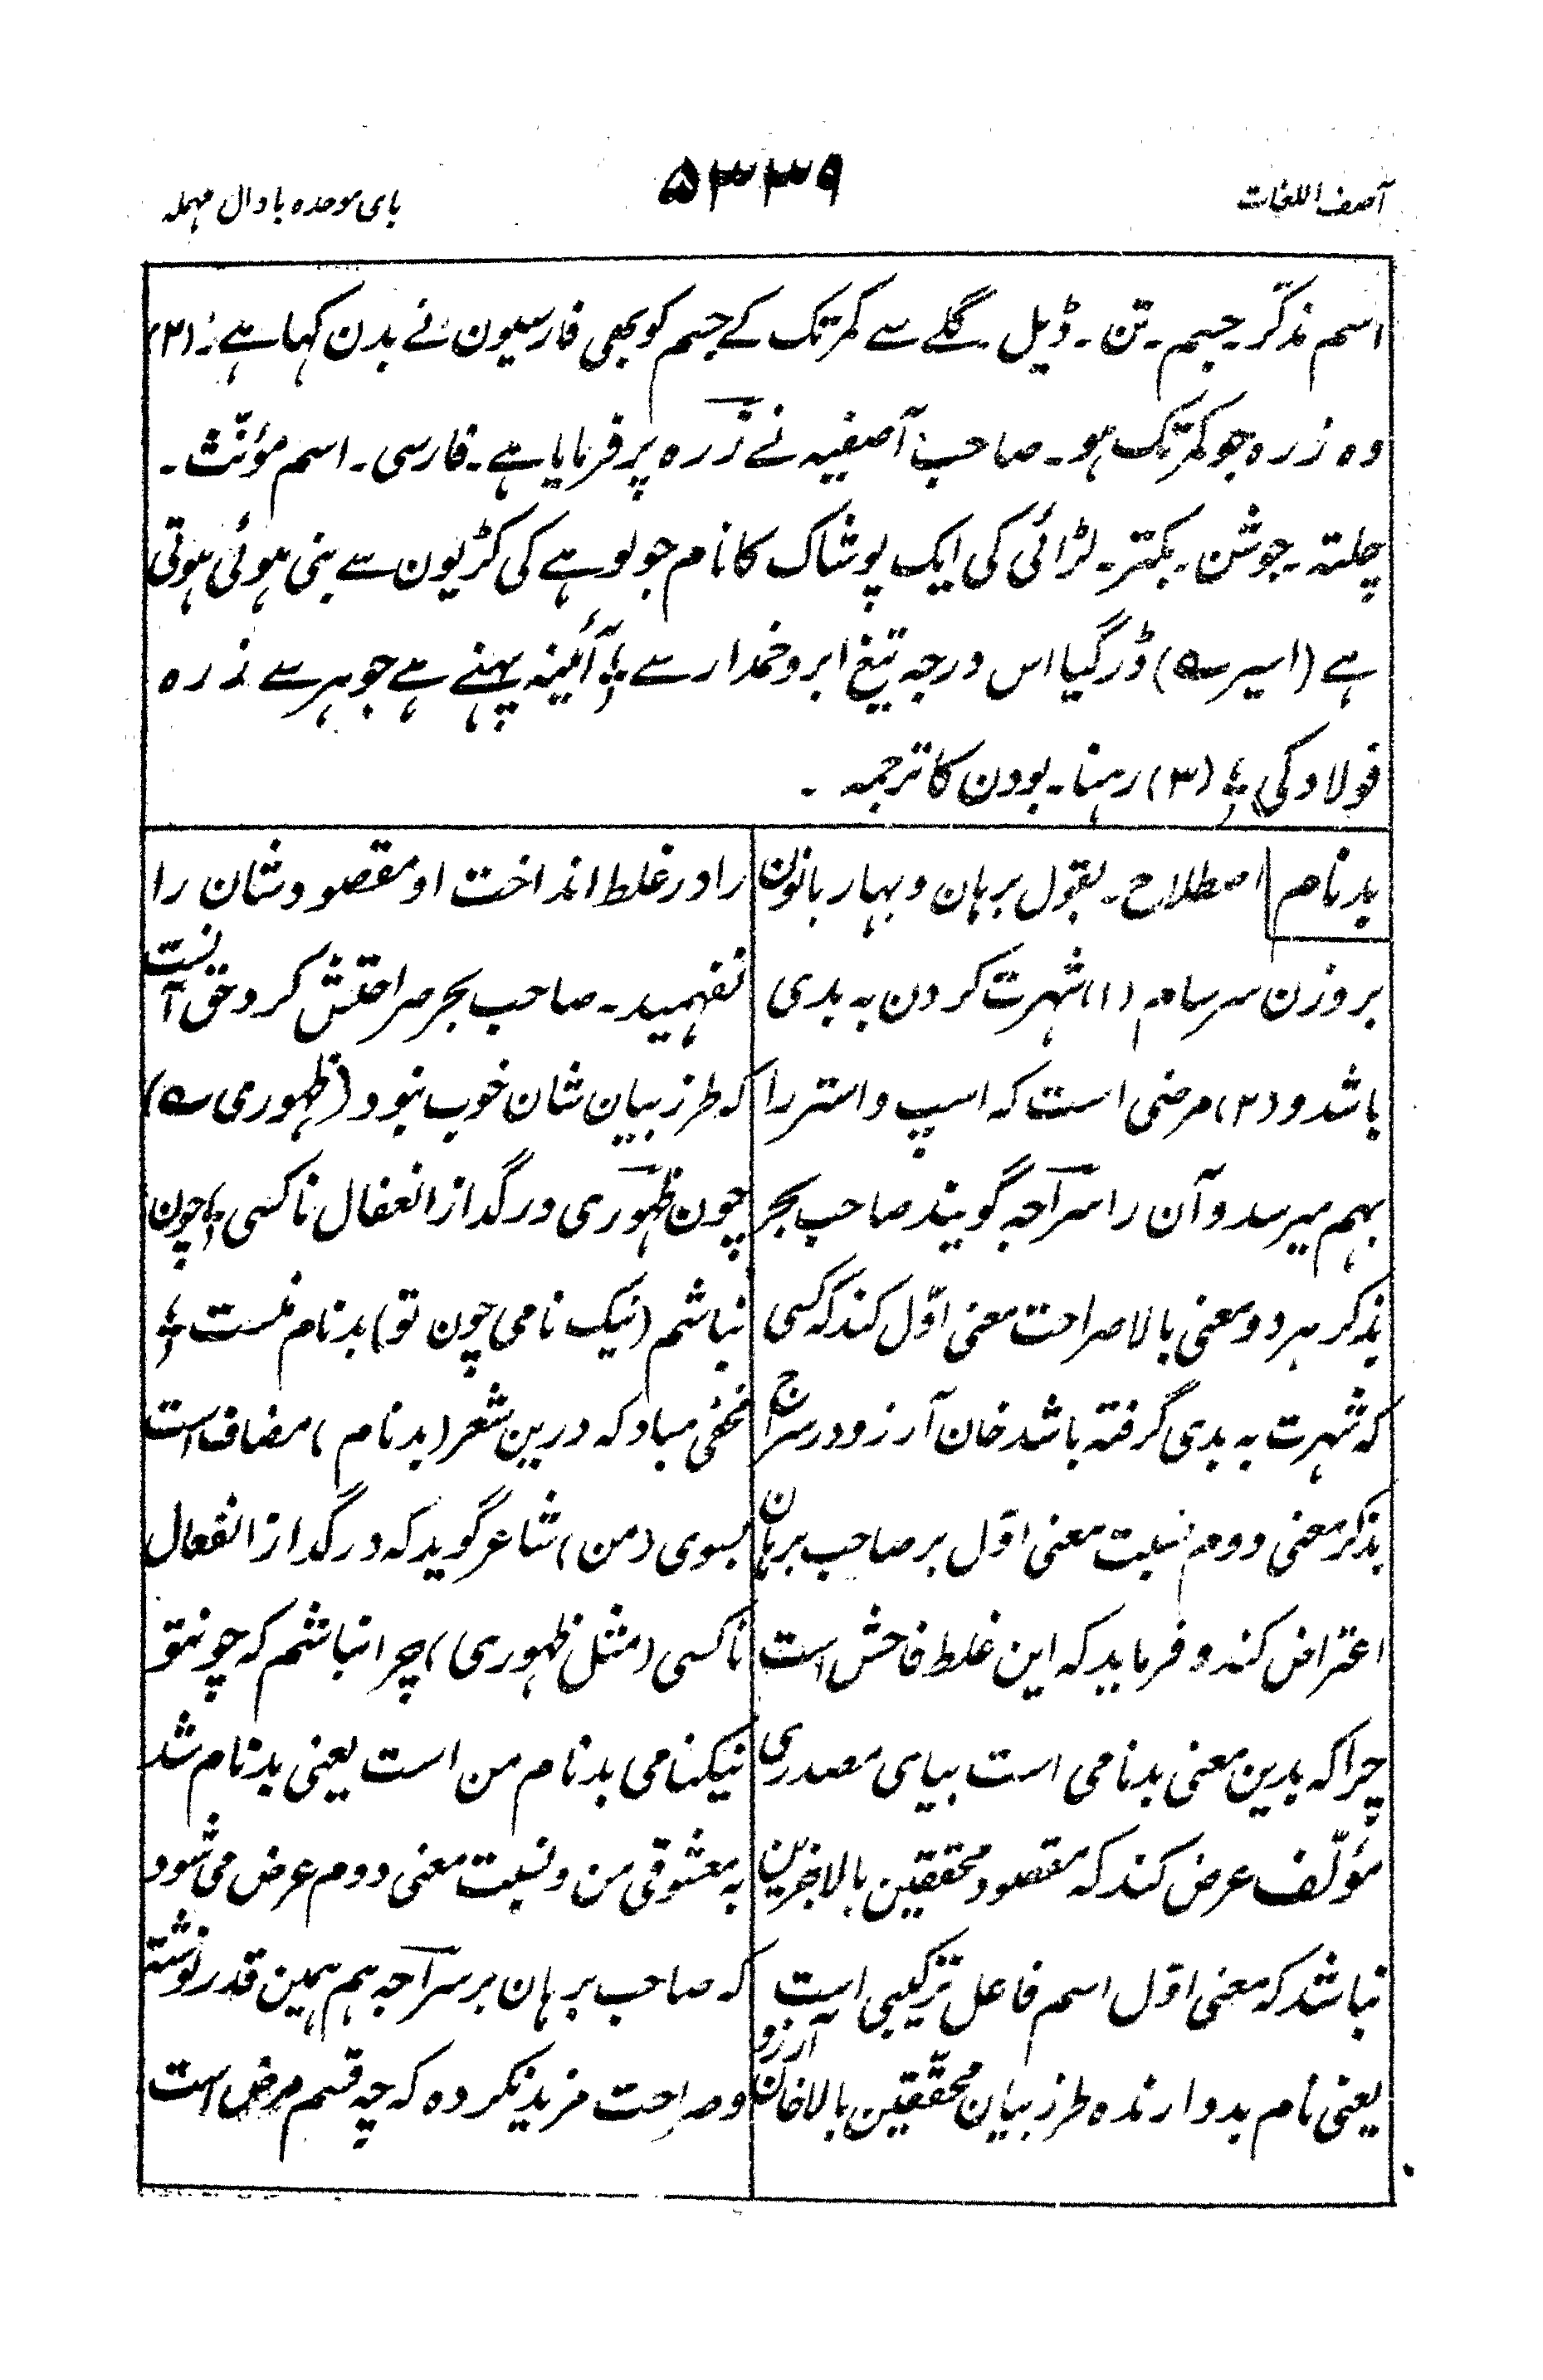 آصف اللغات
۵۳۳۹
بای موحده با دال مهمله
اسم مذکّر۔ جسم۔ تن۔ ڈیل۔ گلے سے کمر تک کے جسم کو بھی فارسیون نے بدن کہا ہے۔ (۲)
وہ زرہ جو کمر تک ہو۔ صاحب آصفیہ نے زرہ پر فرمایا ہے۔ فارسی۔ اسم مؤنّث۔
چلتہ۔ جوشن۔ بکتر۔ لڑائی کی ایک پوشاک کا نام جو لوہے کی کڑیون سے بنی ہوئی ہوتی
ہے (اسیر ؎) ڈر گیا اس درجہ تیغ ابرو خمدار سے ؛ آئینہ پہنے ہے جوہر سے زرہ
فولاد کی ؛ (۳) رہنا۔ بودن کا ترجمہ۔
بدنام اصطلاح۔ بقول برہان و بہار با نون
بروزن سرسام (۱) شہرت کردن بہ بدی
باشد و (۲) مرضی است کہ اسپ و استر را
بہم میرسد و آن را سراجہ گویند صاحب بحر
بذکر ہر دو معنی بالا صراحت معنی اوّل کند کہ کسی
کہ شہرت بہ بدی گرفتہ باشد خان آرزو در سراج
بذکر معنی دوم نسبت معنی اوّل بر صاحب برہان
اعتراض کند و فرماید کہ این غلط فاحش است
چرا کہ بدین معنی بدنامی است بیای مصدری
مؤلّف عرض کند کہ مقصود محققین بالا جزین
نباشد کہ معنی اوّل اسم فاعل ترکیبی است
یعنی نام بد دارندہ طرز بیان محقّقین بالا خان آرزو
را در غلط انداخت او مقصود شان را
نفہمید۔ صاحب بحر صراحتش کرد و حق آنست
کہ طرز بیان شان خوب نبود (ظہوری ؎)
چون ظہوری در گداز انفعال ناکسی ؛ چون
نباشم (نیک نامی چون تو) بدنام منست ؛
مخفی مباد کہ درین شعر (بدنام) مضاف است
بسوی (من) شاعر گوید کہ در گداز انفعال
ناکسی (مثل ظہوری) چرا نباشم کہ چونتو
نیکنامی بدنام من است یعنی بدنام شد
بہ معشوقی من و نسبت معنی دوم عرض می شود
کہ صاحب برہان بر سراجہ ہم ہمین قدر نوشتہ
و صراحت مزید نکردہ کہ چہ قسم مرض است